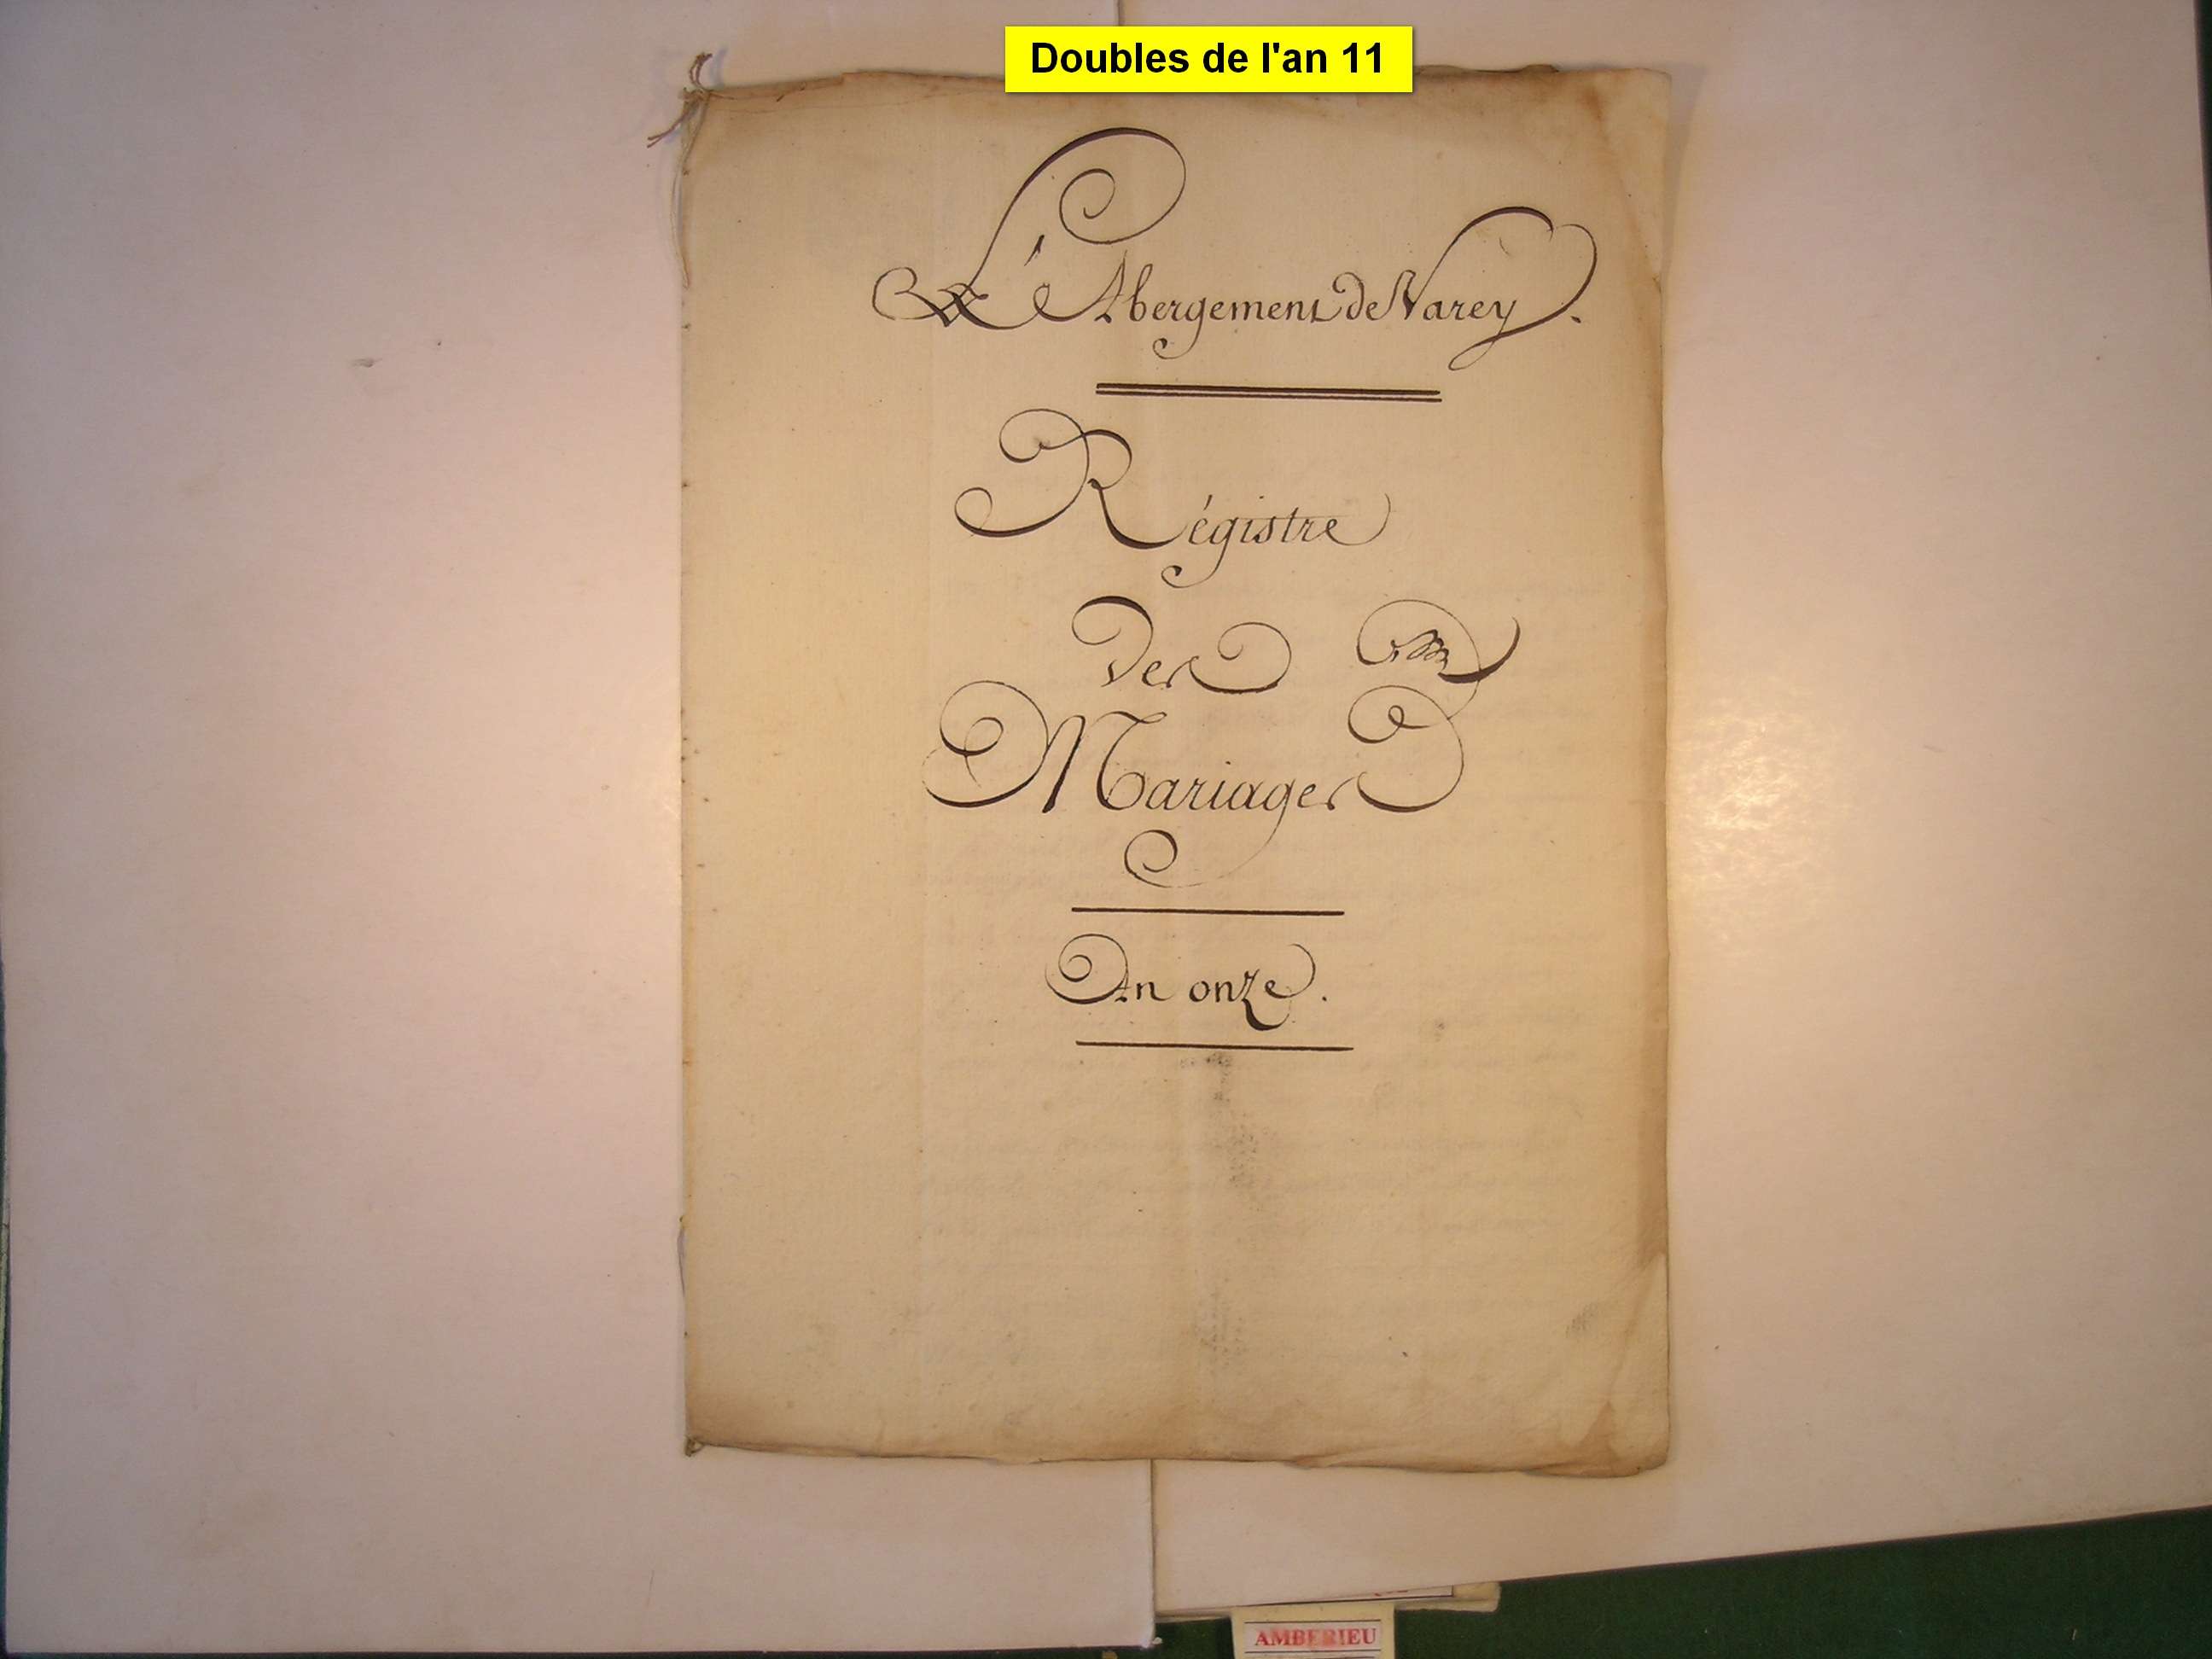 Doubles de l'an 11
L'Abergement de Varey.
Régistre
Des
Mariages
An onze.
AMBERIEU